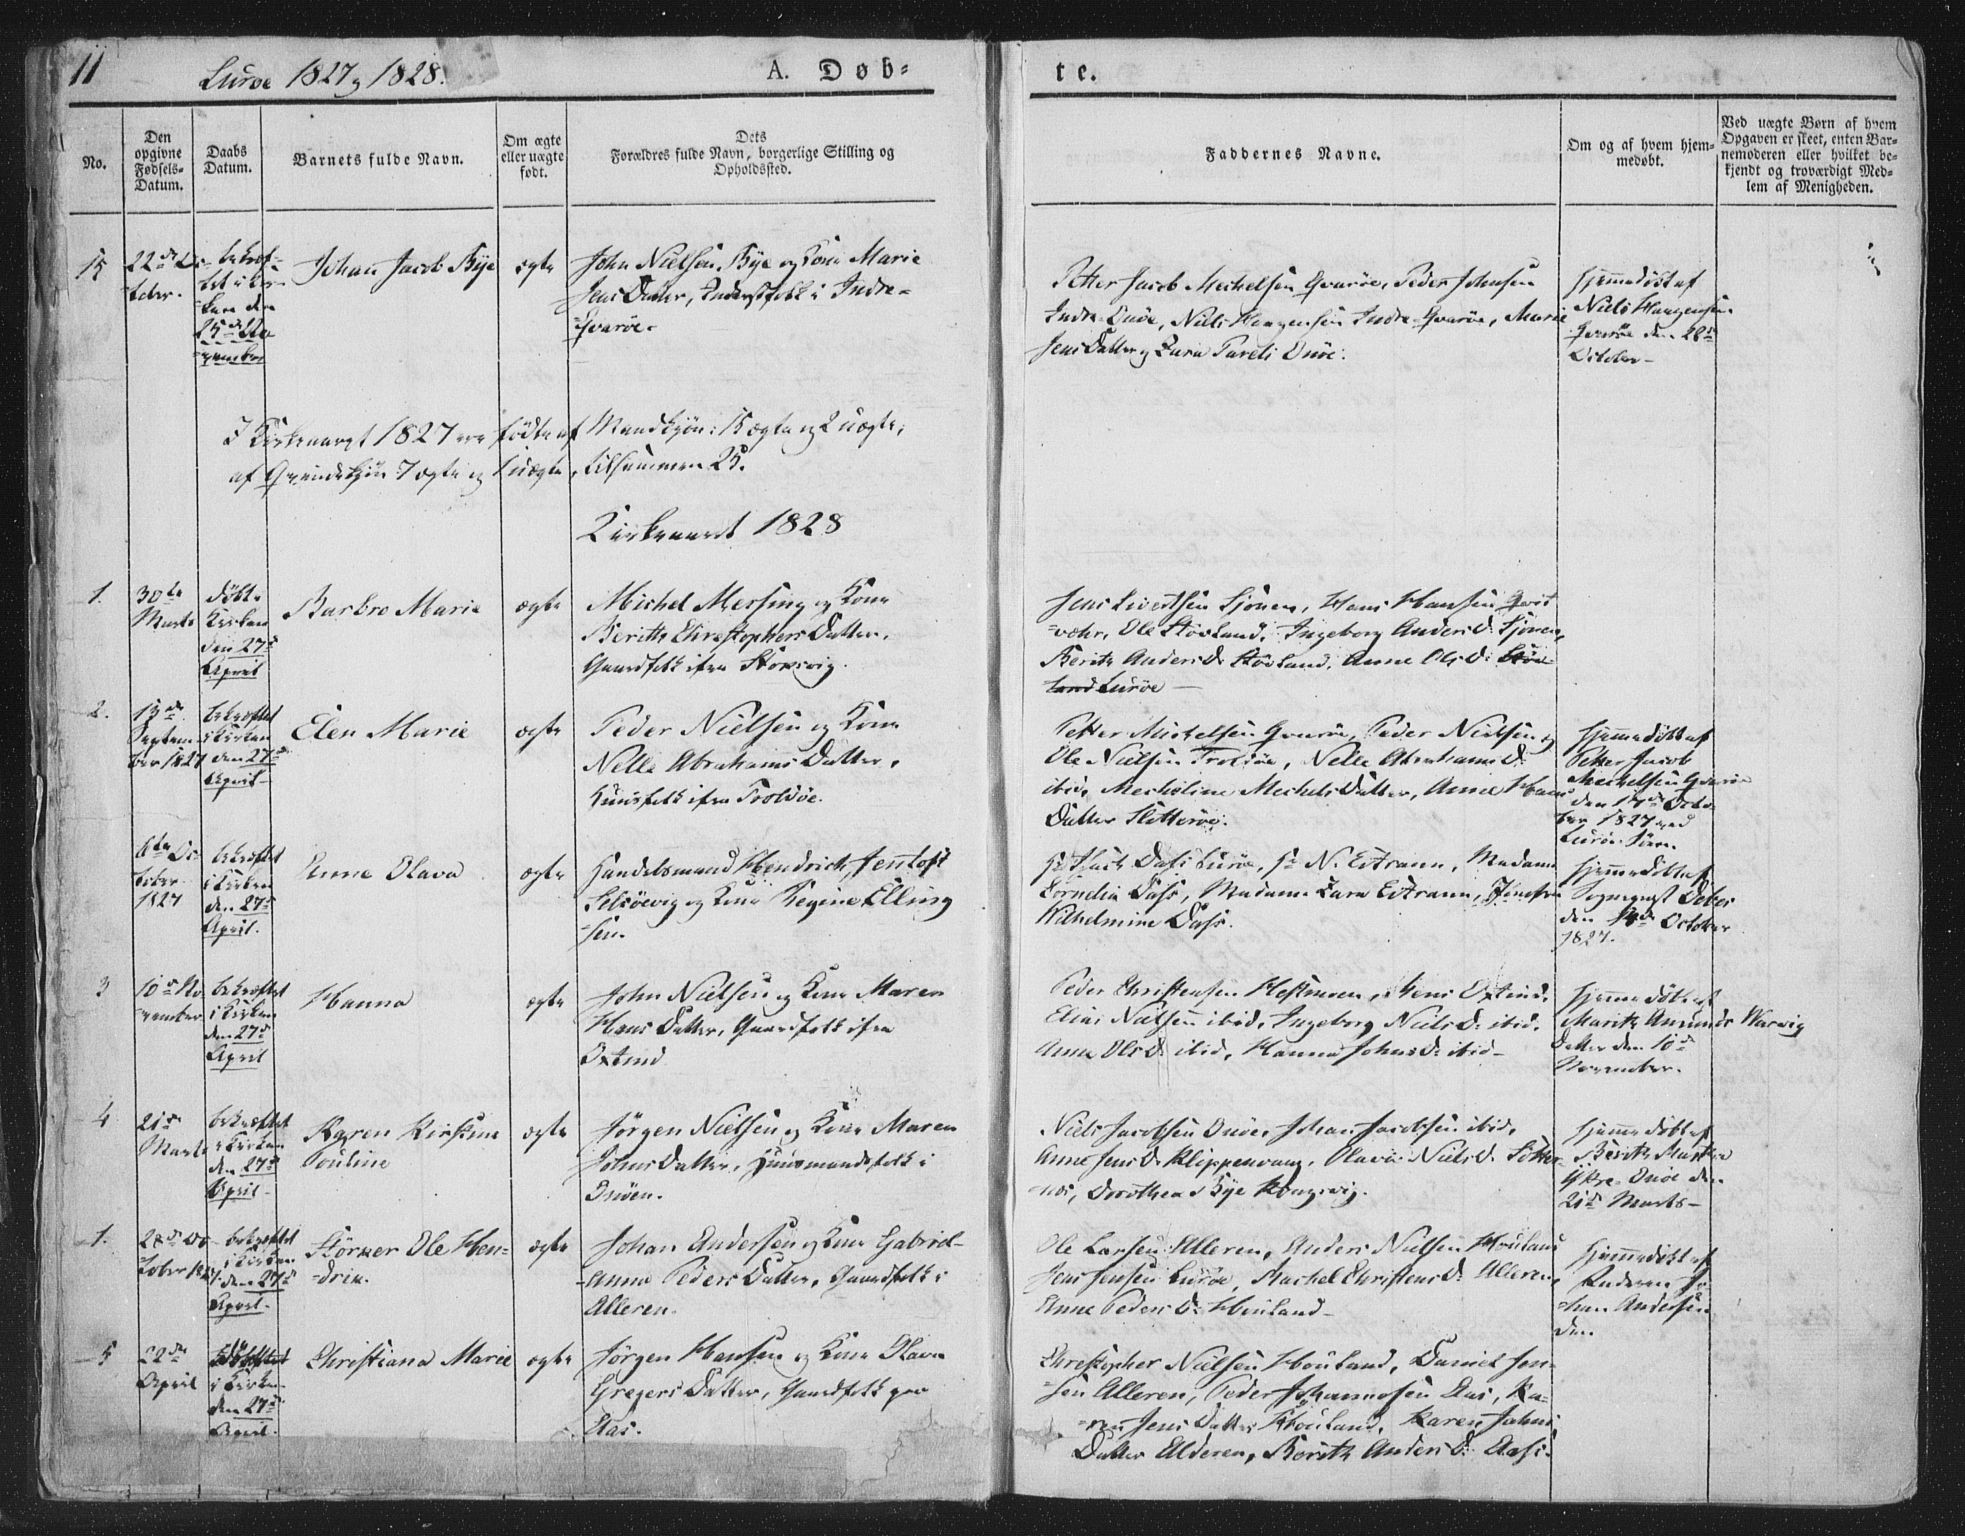 11
Lurøe 1827 og 1828.
A. Døb=
te.
No.
Den
opgivne
Fødsels-
Datum.
Daabs
Datum.
Barnets fulde Navn.
Om ægte
eller uægte
født.
Dets
Forældres fulde Navn, borgerlige Stilling og
Opholdssted.
Faddernes Navne.
Om og af hvem hjem-
medøbt.
Ved uægte Børn af hvem
Opgaven er skeet, enten Bar-
nemoderen eller hvilket be-
kjendt og troværdigt Med-
lem af Menigheden.
15
22de Oc-
tober.
bekræf-
tet i Kir-
ken den
25de No-
vember
Johan Jacob Bye
ægte
John Nielsen Bye og Kone Marie
Jens Datter, Inderstfolk i Indre-
Qvarøe.
Petter Jacob Mechelsen Qvarøe, Peder Johnsen
Indre Onøe, Niels Haagensen Indre Qvarøe, Marie
Jens Datter og Zaria Parels Onøe.
Hjemmedøbt af
Niels Haagensen
Qvarøe den 28de
October-
I Kirkeaaret 1827 ere fødte af Mandkjøn: 15 ægte og 2 uægte,
af Qvindekjøn 7 ægte og 1 uægte, tilsammen 25.
Kirkeaaret 1828
1.
30te
Marts
døbt i
Kirken
den 27de
April
Barbro Marie
ægte
Michel Mersing og Kone
Berith Christophers Datter,
Gaardfolk ifra Storvig.
Jens Sivertsen Sjonen, Hans Hansen Qvit
=væhr, Ole Støvland, Ingeborg Anders D. Sjonen,
Berith Anders D. Støvland, Anne Ols D. Støv-
land Lurøe
2.
13de
Septem
ber 1827
bekræftet
i Kirken
den 27de
April-
Elen Marie
ægte
Peder Nielsen og Kone
Nelle Abrahams Datter,
Huusfolk ifra Troldøe.
Petter Michelsen Qvarøe, Peder Nielsen og
Ole Nielsen Troldøe, Nelle Abrahams D.
ibid, Mecheline Mechels Datter, Anne Hans
Datter Sletterøe.
Hjemmedøbt af
Petter Jacob
Mechelsen Qvarøe
den 17de Octo
ber 1827 ved
Lurøe
6te Oc
tober
1827
bekræftet
i Kirken
den 27de
April.
Anne Olava
ægte
Handelsmand Hendrich Jentoft
Selsøevig og Kone Regine Elling
sen.
Dass Lurøe, Hr N. Evtrann, Madame
Cornelia Dass, Madame Zara Evtrann, Jomfru
Wilhelmine Dass.
Hjemmedøbt af
Sognepræst Debes
den October
1827.
3
10de No
vember
bekræftet
i Kirken
den 27de
April
Hanna
ægte
John Nielsen og Kone Maren
Hans Datter, Gaardfolk ifra
Oxtind
Peder Christensen Hestmoen, Hans Oxtind,
Elias Nielsen ibid, Ingeborg Niels D. ibid,
Anne Ols D. ibid, Hanna Johns D. ibid-
Hjemmedøbt af
Marith Amunds Warvig
Datter den 10de
November.
4
21de
Marts
bekræftet
i Kirken
den 27de
April-
Karen Kirstine
Pauline
ægte
Jørgen Nielsen og Kone Maren
Johns Datter, Huusmandsfolk i
Onøen.
Niels Jacobsen Onøe, Johan Jacobsen ibid,
Anne Jens D. Klippenvaag, Olava Niels D. Sokker-
næs, Dorothea Bye Kongsvig.
Hjemmedøbt af
Berith Martha
Ytre-Onøe den
21de Marts-
1.
28de Oc
tober 1827
bekræftet
i Kirken
den 27de
April-
Størker Ole Hen=
=drik.
ægte
Johan Andersen og Kone Gabriel-
Anna Peders Datter, Gaardfolk i
Alleren.
Ole Larsen Alleren, Anders Nielsen Houland
Jens Jensen Lurøe, Rachel Christens D. Alleren,
Anne Peders D. Houland-
Hjemmedøbt af
Faderen Jo
han Andersen
den
5
22de
April
døbt
i Kirken
den 27de
April.
Christiana Marie
ægte
Jørgen Hansen og Kone Olava
Gregers Datter, Gaardfolk paa
Aas.
Christopher Nielsen Houland, Daniel Jen-
=sen Alleren, Peder Johannesen Aas, Ka-
=ren Jens Datter Houland, Karen Johns
Datter Alderen, Berith Anders D. Aas.